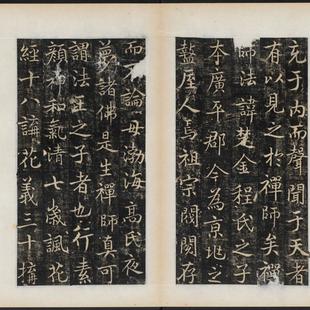 充于內而聲聞于天者
有以見之於禪師矣禪
師法諱楚金程氏之子
本廣平郡今為京兆之
盩厔人焉祖宗閥閱存
而不論母渤海高氏夜
夢諸佛是生禪師真可
謂法王之子者也行素
顏和氣清七歲諷花
經十八講花義三十構